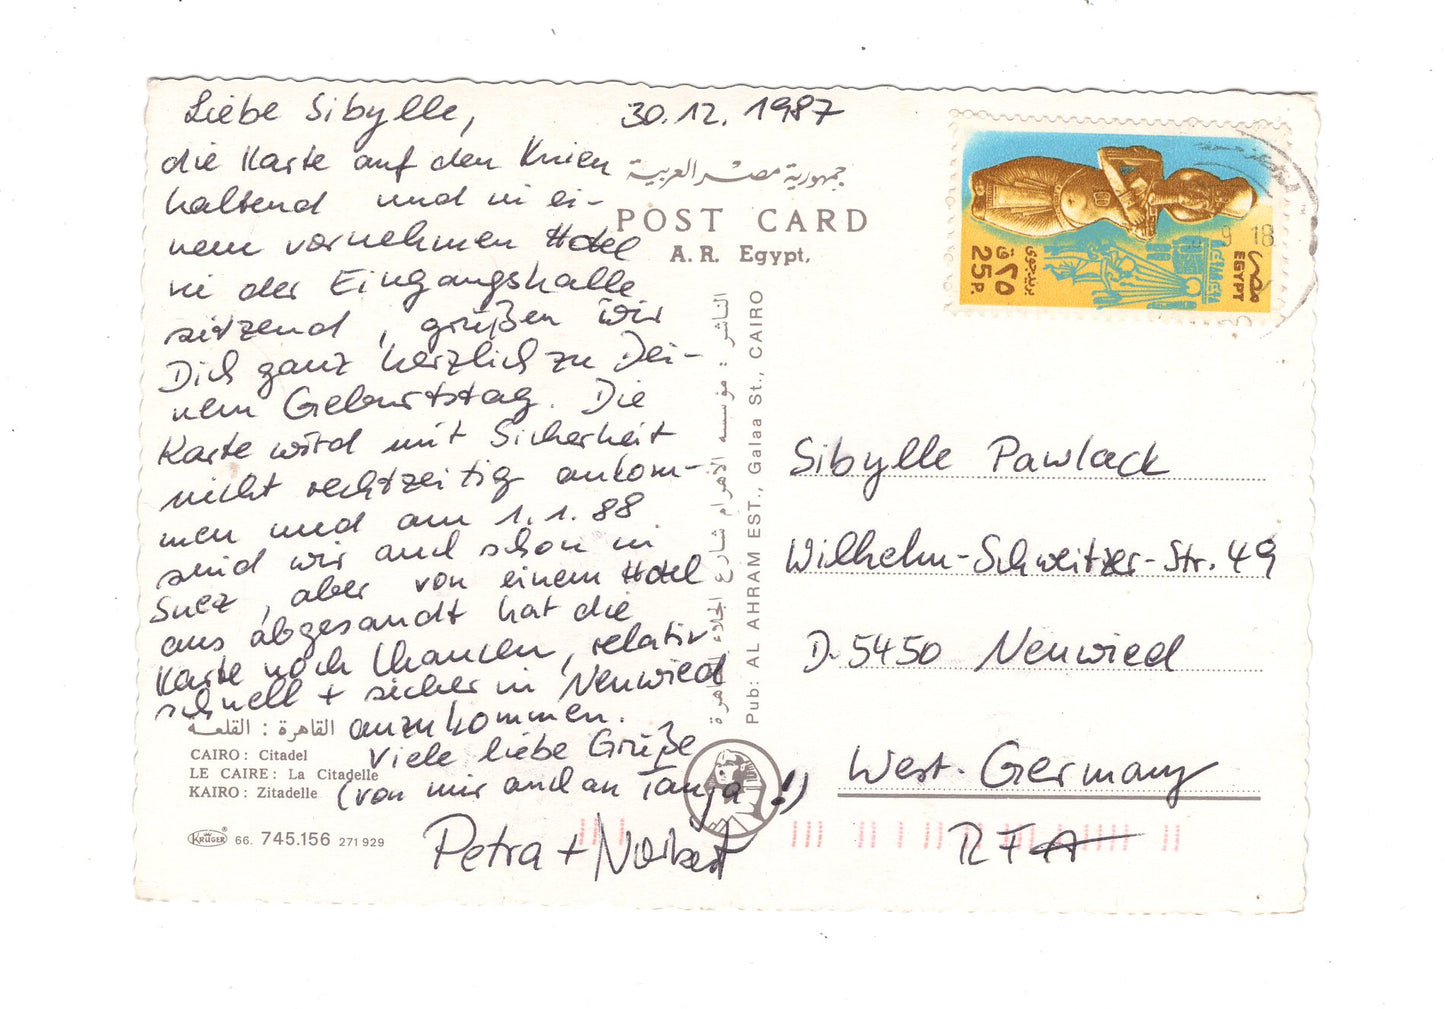 Liebe Sibylle,
30.12.1987
die Karte auf den Knien
haltend und in ei-
nem vornehmen Hotel
in der Eingangshalle
sitzend, grüßen wir
Dich ganz herzlich zu Dei-
nem Geburtstag. Die
Karte wird mit Sicherheit
nicht rechtzeitig ankom-
men und am 1.1.88
sind wir auch schon in
Suez, aber von einem Hotel
aus abgesandt hat die
Karte noch Chancen, relativ
schnell + sicher in Neuwied
anzukommen.
Viele liebe Grüße
(von mir auch an Tanja!)
Petra + Norbert
القاهرة : القلعة
CAIRO : Citadel
LE CAIRE : La Citadelle
KAIRO : Zitadelle
KRÜGER 66. 745.156 271929
جمهورية مصر العربية
POST CARD
A. R. Egypt.
الناشر : مؤسسه الأهرام شارع الجلاء القاهرة
Pub: AL AHRAM EST., Galaa St., CAIRO
مصر
EGYPT
٢٥ ق
25 P.
بريد جوى
AIR MAIL
9 18
Sibylle Pawlack
Wilhelm-Schweitzer-Str. 49
D-5450 Neuwied
West-Germany
RFA